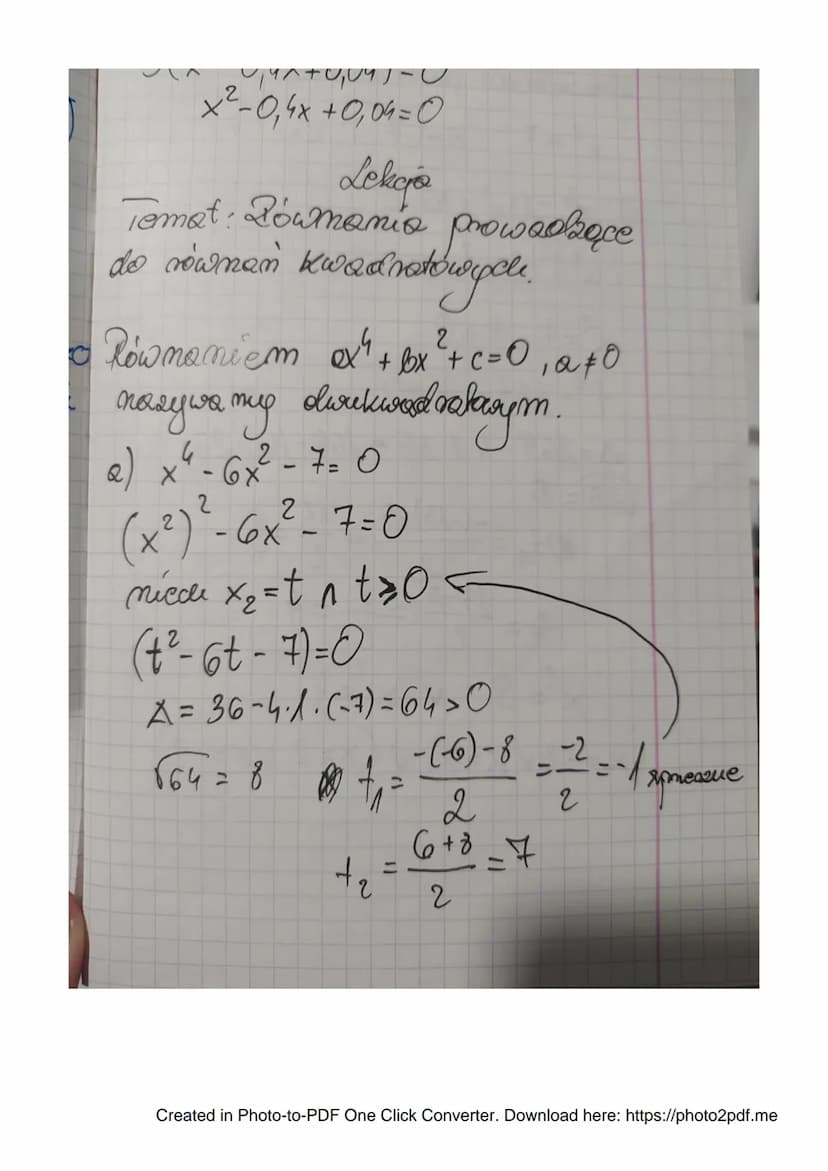 x²-0,4x+0,04=0
Lekcja
Temat: Równania prowadzące
do równań kwadratowych.
Równaniem ax⁴+bx²+c=0, a≠0
nazywamy dwukwadratowym.
a) x⁴-6x²-7=0
(x²)²-6x²-7=0
niech x₂=t ∧ t⩾0
(t²-6t-7)=0
Δ=36-4·1·(-7)=64>0
√64=8 t₁=\frac{-(-6)-8}{2}=\frac{-2}{2}=-1
t₂=\frac{6+8}{2}=7
Created in Photo-to-PDF One Click Converter. Download here: https://photo2pdf.me